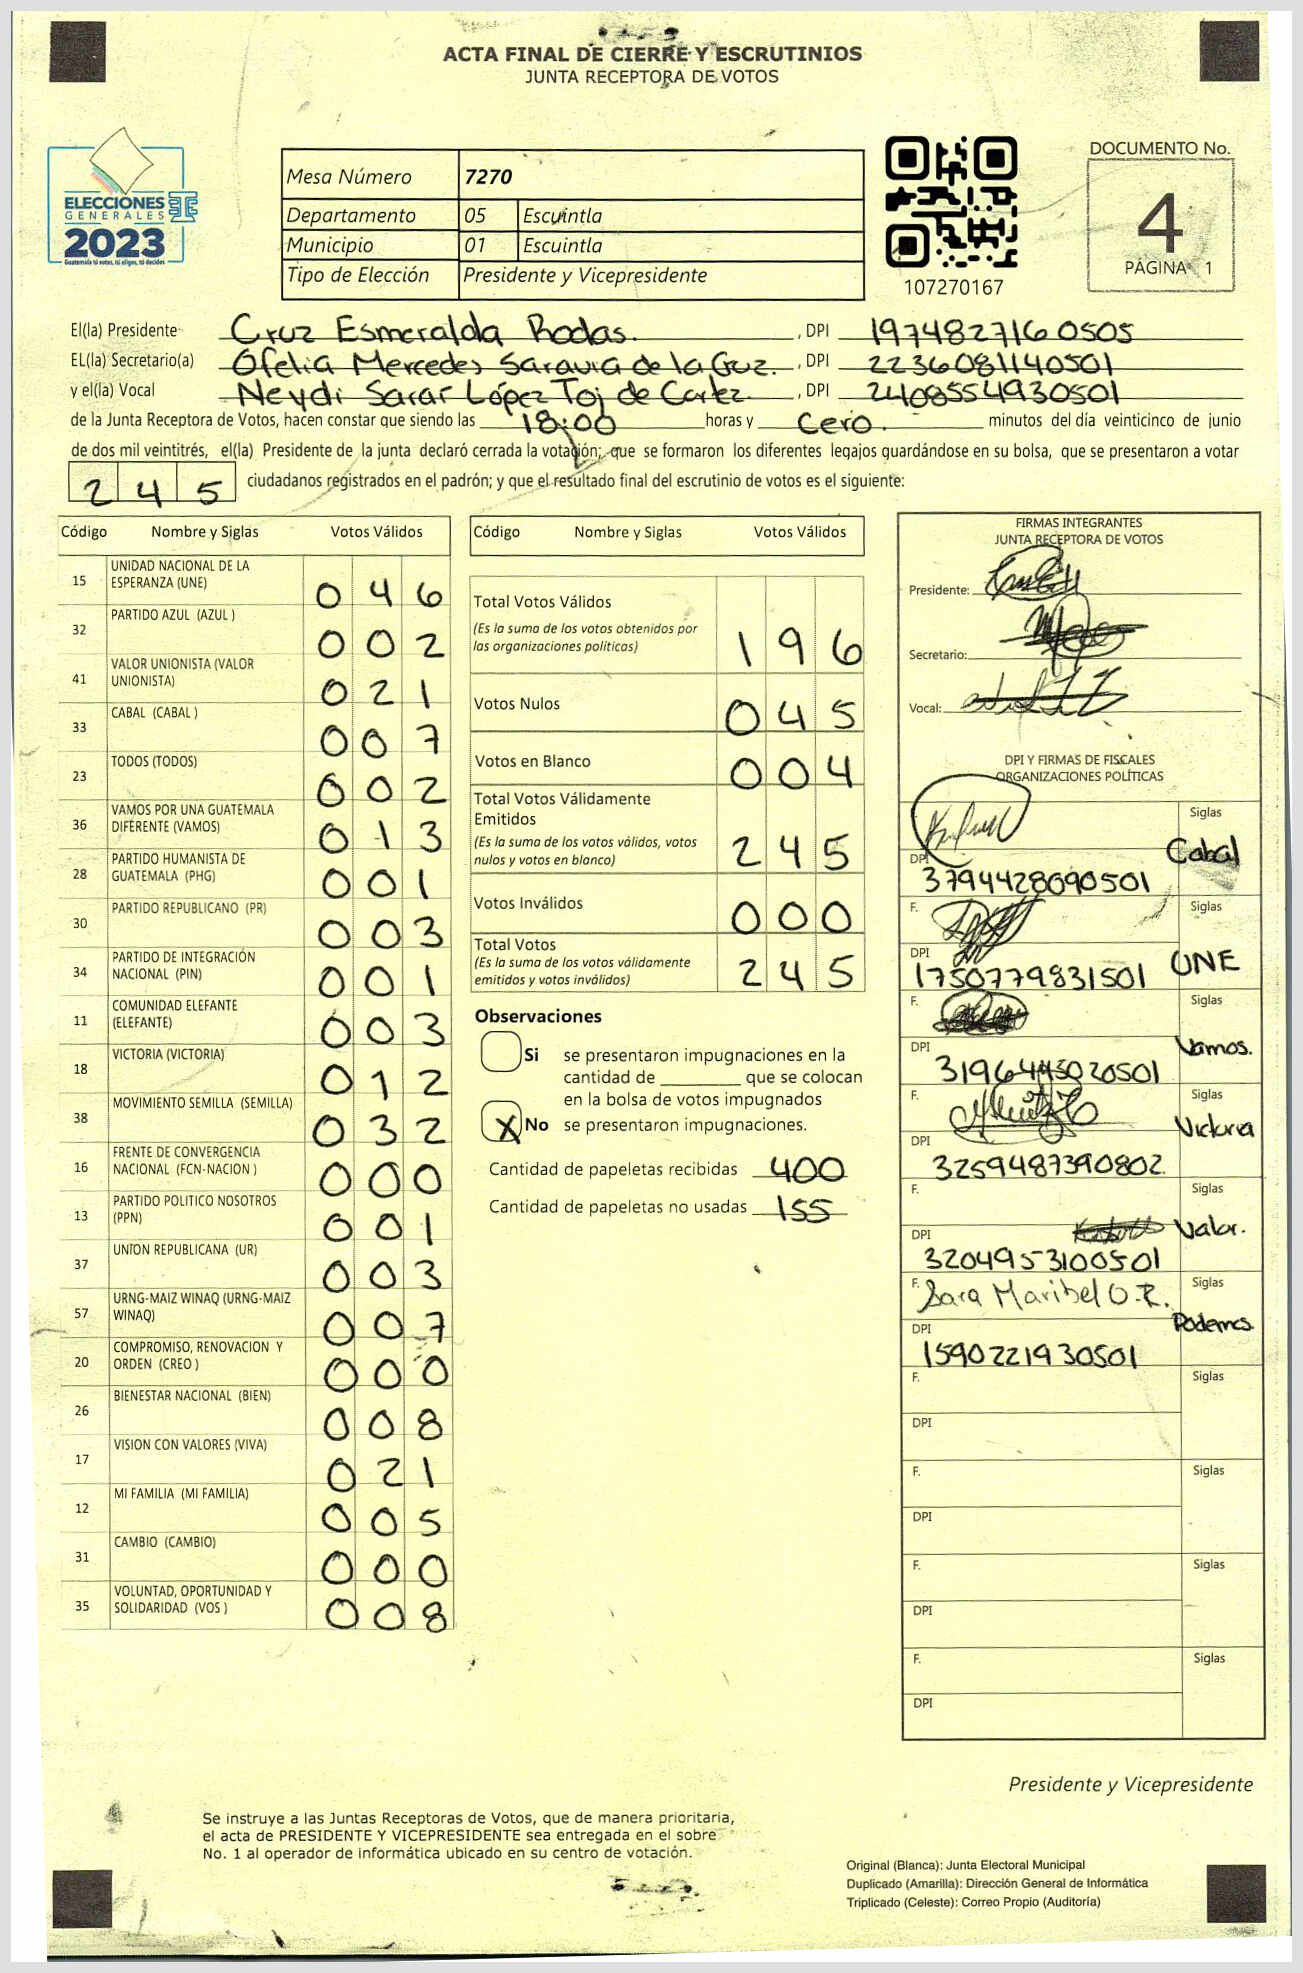 ACTA FINAL DE CIERRE Y ESCRUTINIOS
JUNTA RECEPTORA DE VOTOS
ELECCIONES
GENERALES
2023
Guatemala tú votas, tú eliges, tú decides
Mesa Número 7270
Departamento 05 Escuintla
Municipio 01 Escuintla
Tipo de Elección Presidente y Vicepresidente
107270167
DOCUMENTO No.
4
PÁGINA 1
El(la) Presidente Cruz Esmeralda Rodas. , DPI 1974827160505
EL(la) Secretario(a) Ofelia Mercedes Saravia de la Cruz. , DPI 2236081140501
y el(la) Vocal Neydi Sarar López Toj de Cortez. , DPI 2408554930501
de la Junta Receptora de Votos, hacen constar que siendo las 18:00 horas y Cero. minutos del día veinticinco de junio
de dos mil veintitrés, el(la) Presidente de la junta declaró cerrada la votación; que se formaron los diferentes legajos guardándose en su bolsa, que se presentaron a votar
245 ciudadanos registrados en el padrón; y que el resultado final del escrutinio de votos es el siguiente:
Código Nombre y Siglas Votos Válidos
15 UNIDAD NACIONAL DE LA ESPERANZA (UNE) 046
32 PARTIDO AZUL (AZUL ) 002
41 VALOR UNIONISTA (VALOR UNIONISTA) 021
33 CABAL (CABAL ) 007
23 TODOS (TODOS) 002
36 VAMOS POR UNA GUATEMALA DIFERENTE (VAMOS) 013
28 PARTIDO HUMANISTA DE GUATEMALA (PHG) 001
30 PARTIDO REPUBLICANO (PR) 003
34 PARTIDO DE INTEGRACIÓN NACIONAL (PIN) 001
11 COMUNIDAD ELEFANTE (ELEFANTE) 003
18 VICTORIA (VICTORIA) 012
38 MOVIMIENTO SEMILLA (SEMILLA) 032
16 FRENTE DE CONVERGENCIA NACIONAL (FCN-NACION ) 000
13 PARTIDO POLITICO NOSOTROS (PPN) 001
37 UNION REPUBLICANA (UR) 003
57 URNG-MAIZ WINAQ (URNG-MAIZ WINAQ) 007
20 COMPROMISO, RENOVACION Y ORDEN (CREO ) 000
26 BIENESTAR NACIONAL (BIEN) 008
17 VISION CON VALORES (VIVA) 021
12 MI FAMILIA (MI FAMILIA) 005
31 CAMBIO (CAMBIO) 000
35 VOLUNTAD, OPORTUNIDAD Y SOLIDARIDAD (VOS ) 008
Código Nombre y Siglas Votos Válidos
Total Votos Válidos
(Es la suma de los votos obtenidos por
las organizaciones políticas) 196
Votos Nulos 045
Votos en Blanco 004
Total Votos Válidamente
Emitidos
(Es la suma de los votos válidos, votos
nulos y votos en blanco) 245
Votos Inválidos 000
Total Votos
(Es la suma de los votos válidamente
emitidos y votos inválidos) 245
Observaciones
Si se presentaron impugnaciones en la
cantidad de ________ que se colocan
en la bolsa de votos impugnados
X No se presentaron impugnaciones.
Cantidad de papeletas recibidas 400
Cantidad de papeletas no usadas 155
FIRMAS INTEGRANTES
JUNTA RECEPTORA DE VOTOS
Presidente:
Secretario:
Vocal:
DPI Y FIRMAS DE FISCALES
ORGANIZACIONES POLÍTICAS
Siglas Cabal
DPI 3794428090501
F. Siglas
DPI 1750779831501 UNE
F. Siglas
DPI 3196445020501 Vamos.
F. Siglas
DPI 3259487390802. Victoria
F. Siglas
DPI 3204953100501 Valor.
F. Sara Maribel O.R. Siglas
DPI 1590221930501 Podemos
F. Siglas
DPI
F. Siglas
DPI
F. Siglas
DPI
F. Siglas
DPI
Presidente y Vicepresidente
Se instruye a las Juntas Receptoras de Votos, que de manera prioritaria,
el acta de PRESIDENTE Y VICEPRESIDENTE sea entregada en el sobre
No. 1 al operador de informática ubicado en su centro de votación.
Original (Blanca): Junta Electoral Municipal
Duplicado (Amarilla): Dirección General de Informática
Triplicado (Celeste): Correo Propio (Auditoría)